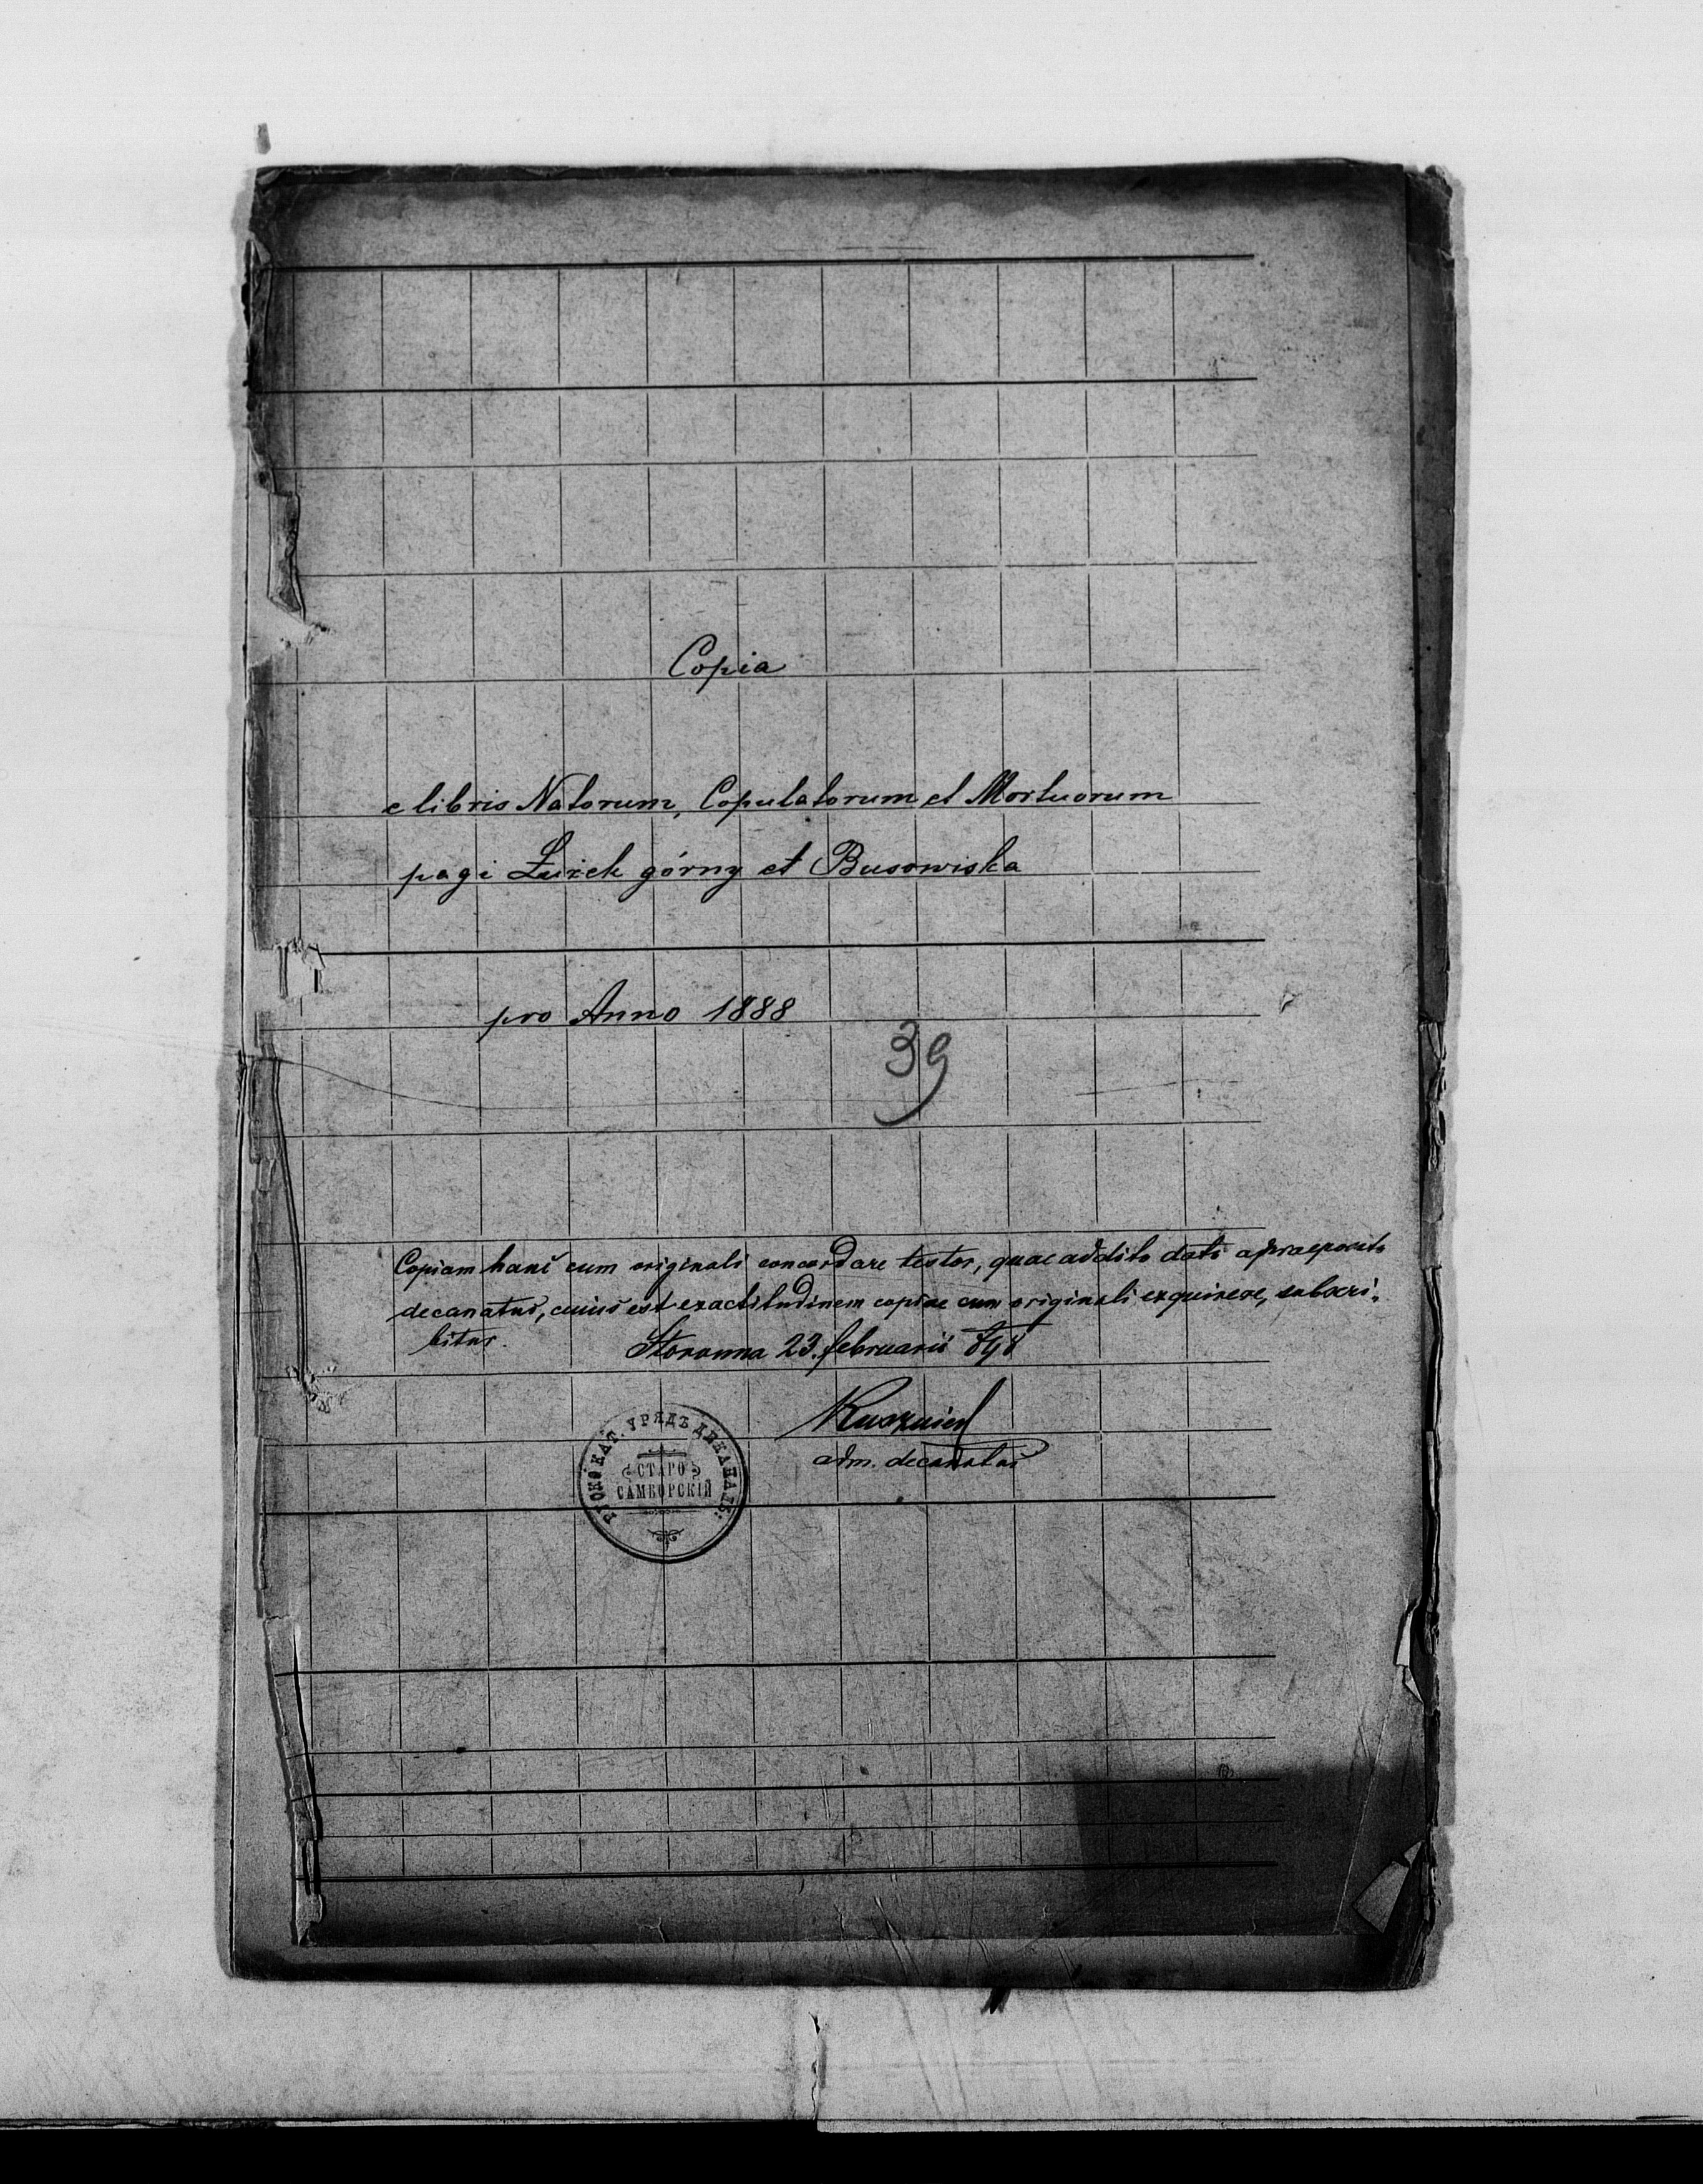 Copia
e libris Natorum, Copulatorum et Mortuorum
pagi Łużek górny et Busowiska
pro Anno 1888
39
Copiam hanc cum originali concordare testor, quae addito dati a praeposito
decanatus, cuius est exactitudinem copiae cum originali exquirere, subscri-
bitur.
23. februarii
adm. decanatus
УРЯДЪ ДЕКАНАЛЬ:
СТАРО
САМБОРСКІЙ